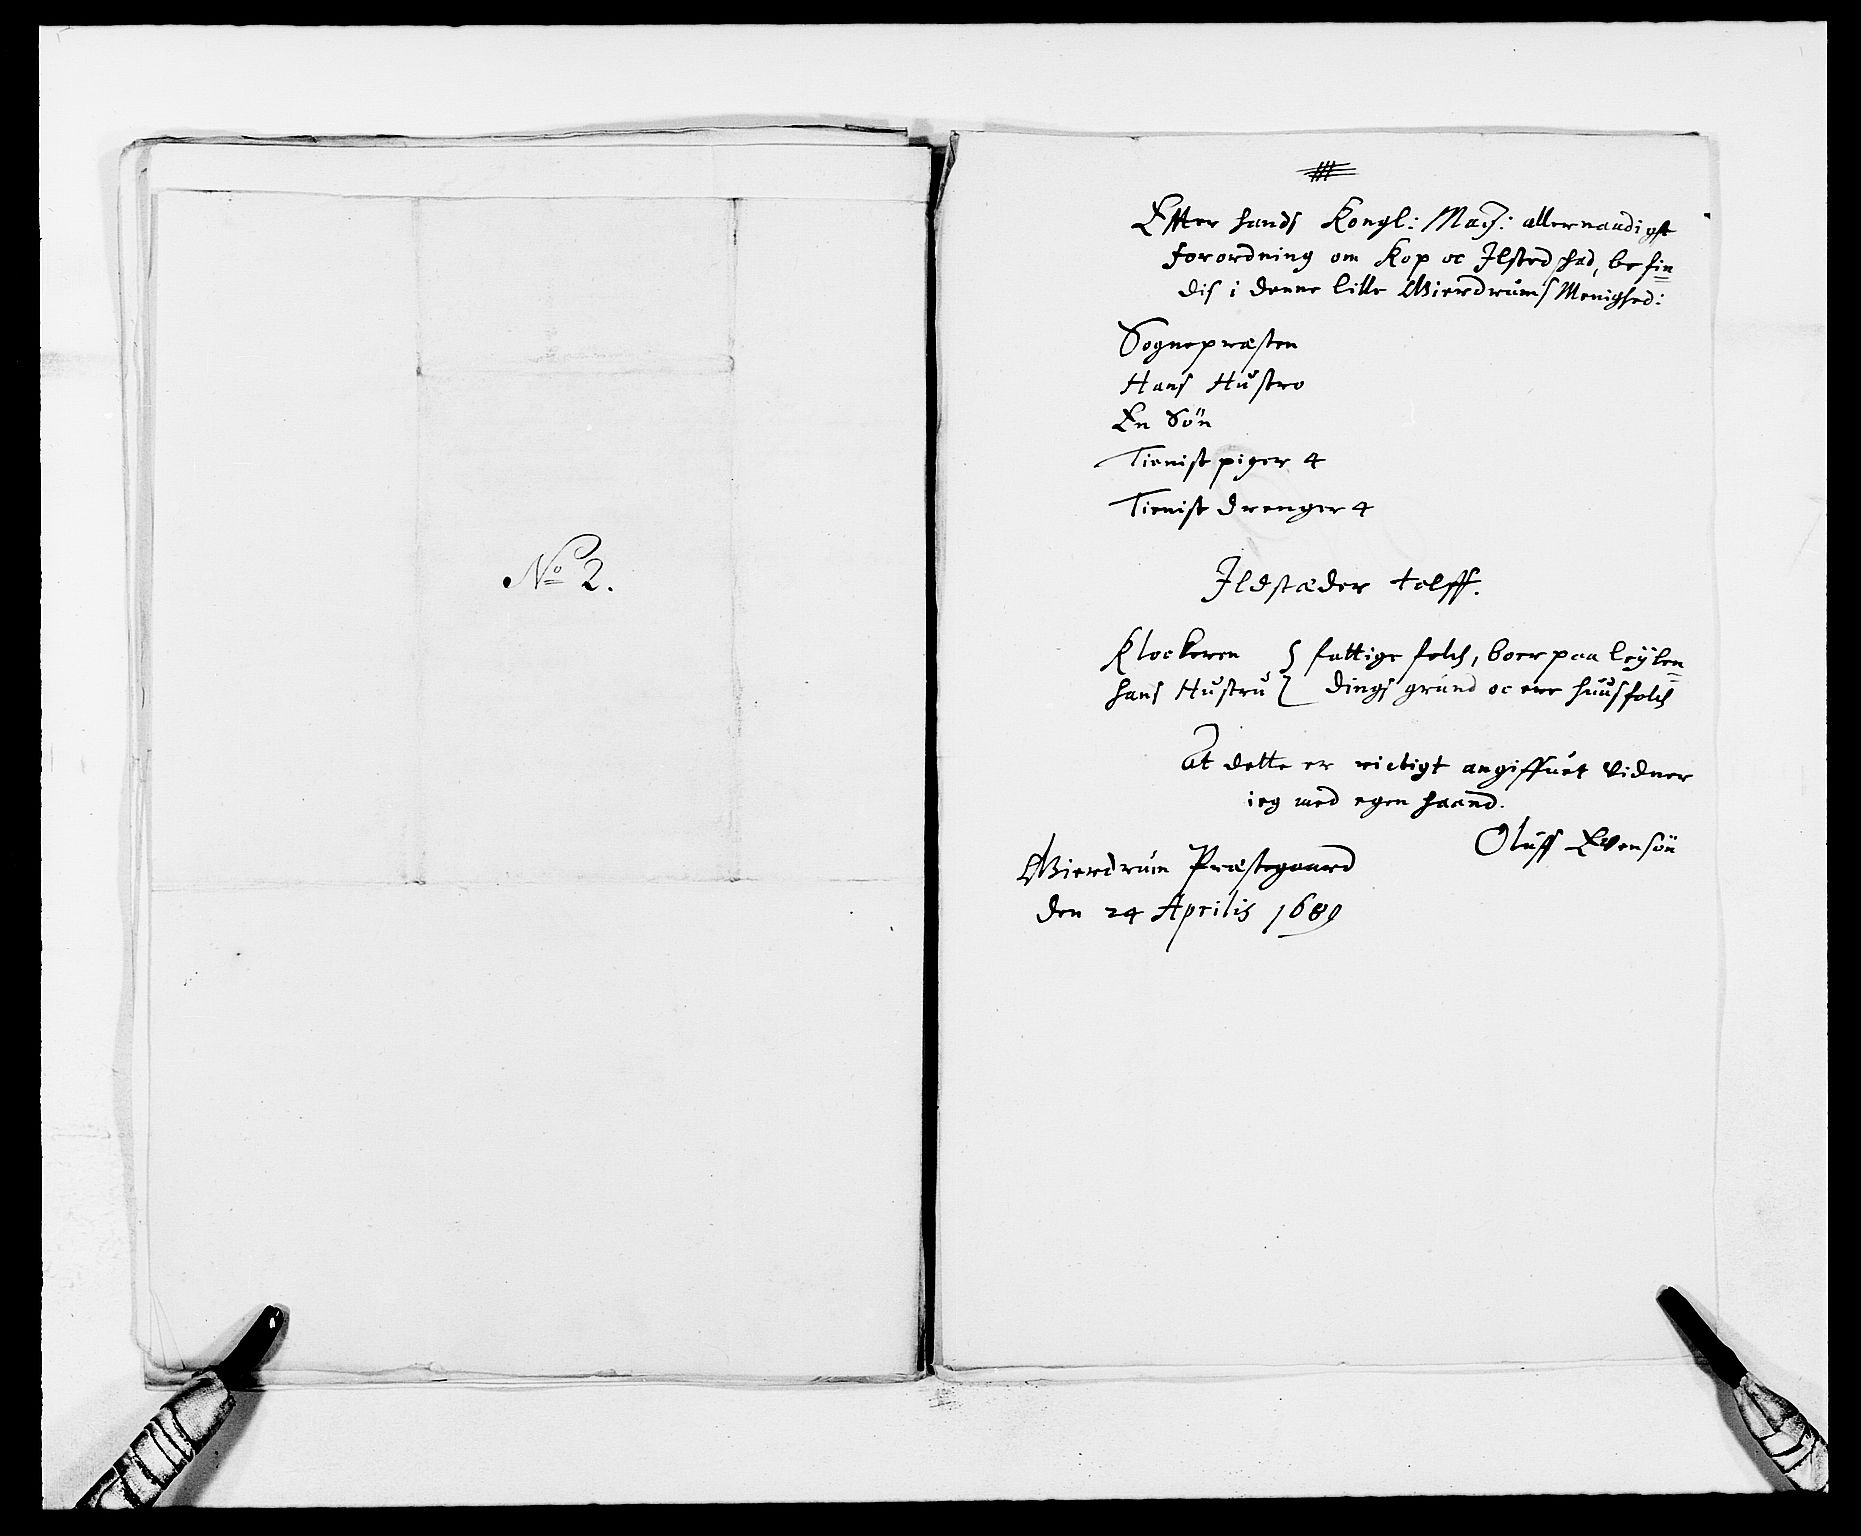 No 2.
Effter hands Kongl: May: allernaadigst
forordning om Kop oc Ilsted skad, befin=
dis i denne lille Wierdrums Menighed:
Sognepræsten
Hans Hustro
En Søn
Tienist piger 4
Tienist drenger 4
Ildstæder tolff.
Klockeren } fattige folch, boer paa leÿlen=
hans Hustru } dings grund oc ere huusfolch
At dette er rictigt angiffuet vidner
ieg med egen haand.
Oluff Evensøn
Wierdrum Præstegaard
den 24 Aprilis 1689